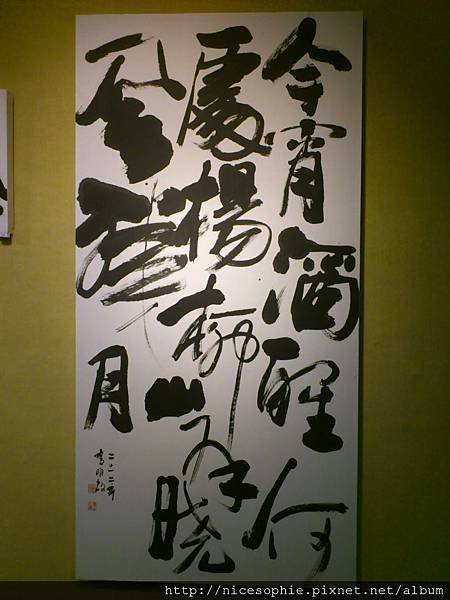 今宵酒醒何
處楊柳岸曉
風殘月
二〇一二年
http://nicesophie.pixnet.net/album